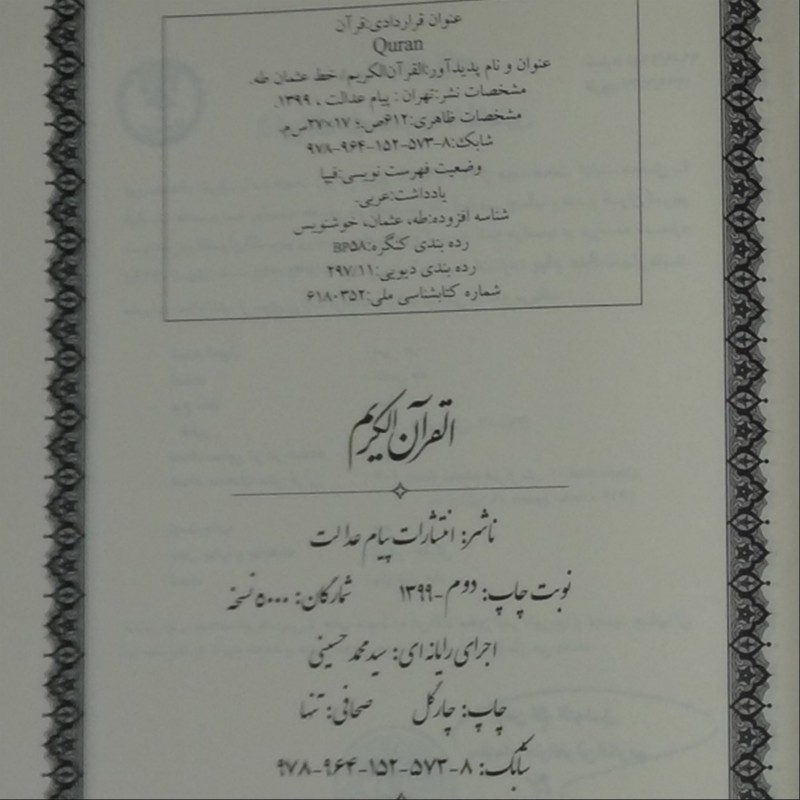 عنوان قراردادی:قرآن
Quran
عنوان و نام پدیدآور:القرآن‌الکریم/ خط عثمان طه.
مشخصات نشر:تهران : پیام عدالت ، ۱۳۹۹.
مشخصات ظاهری:۶۱۲ص.؛ ۱۷×۲۷س‌م.
شابک:۸-۵۷۳-۱۵۲-۹۶۴-۹۷۸
وضعیت فهرست نویسی:فیپا
یادداشت:عربی.
شناسه افزوده:طه، عثمان، خوشنویس
رده بندی کنگره:BP۵۸
رده بندی دیویی:۲۹۷/۱۱
شماره کتابشناسی ملی:۶۱۸۰۳۵۲
القرآن الکریم
ناشر: انتشارات پیام عدالت
نوبت چاپ: دوم-۱۳۹۹ شمارگان: ۵۰۰۰ نسخه
اجرای رایانه ای: سید محمد حسینی
چاپ: چارگل صحافی: تنها
شابک: ۸-۵۷۳-۱۵۲-۹۶۴-۹۷۸